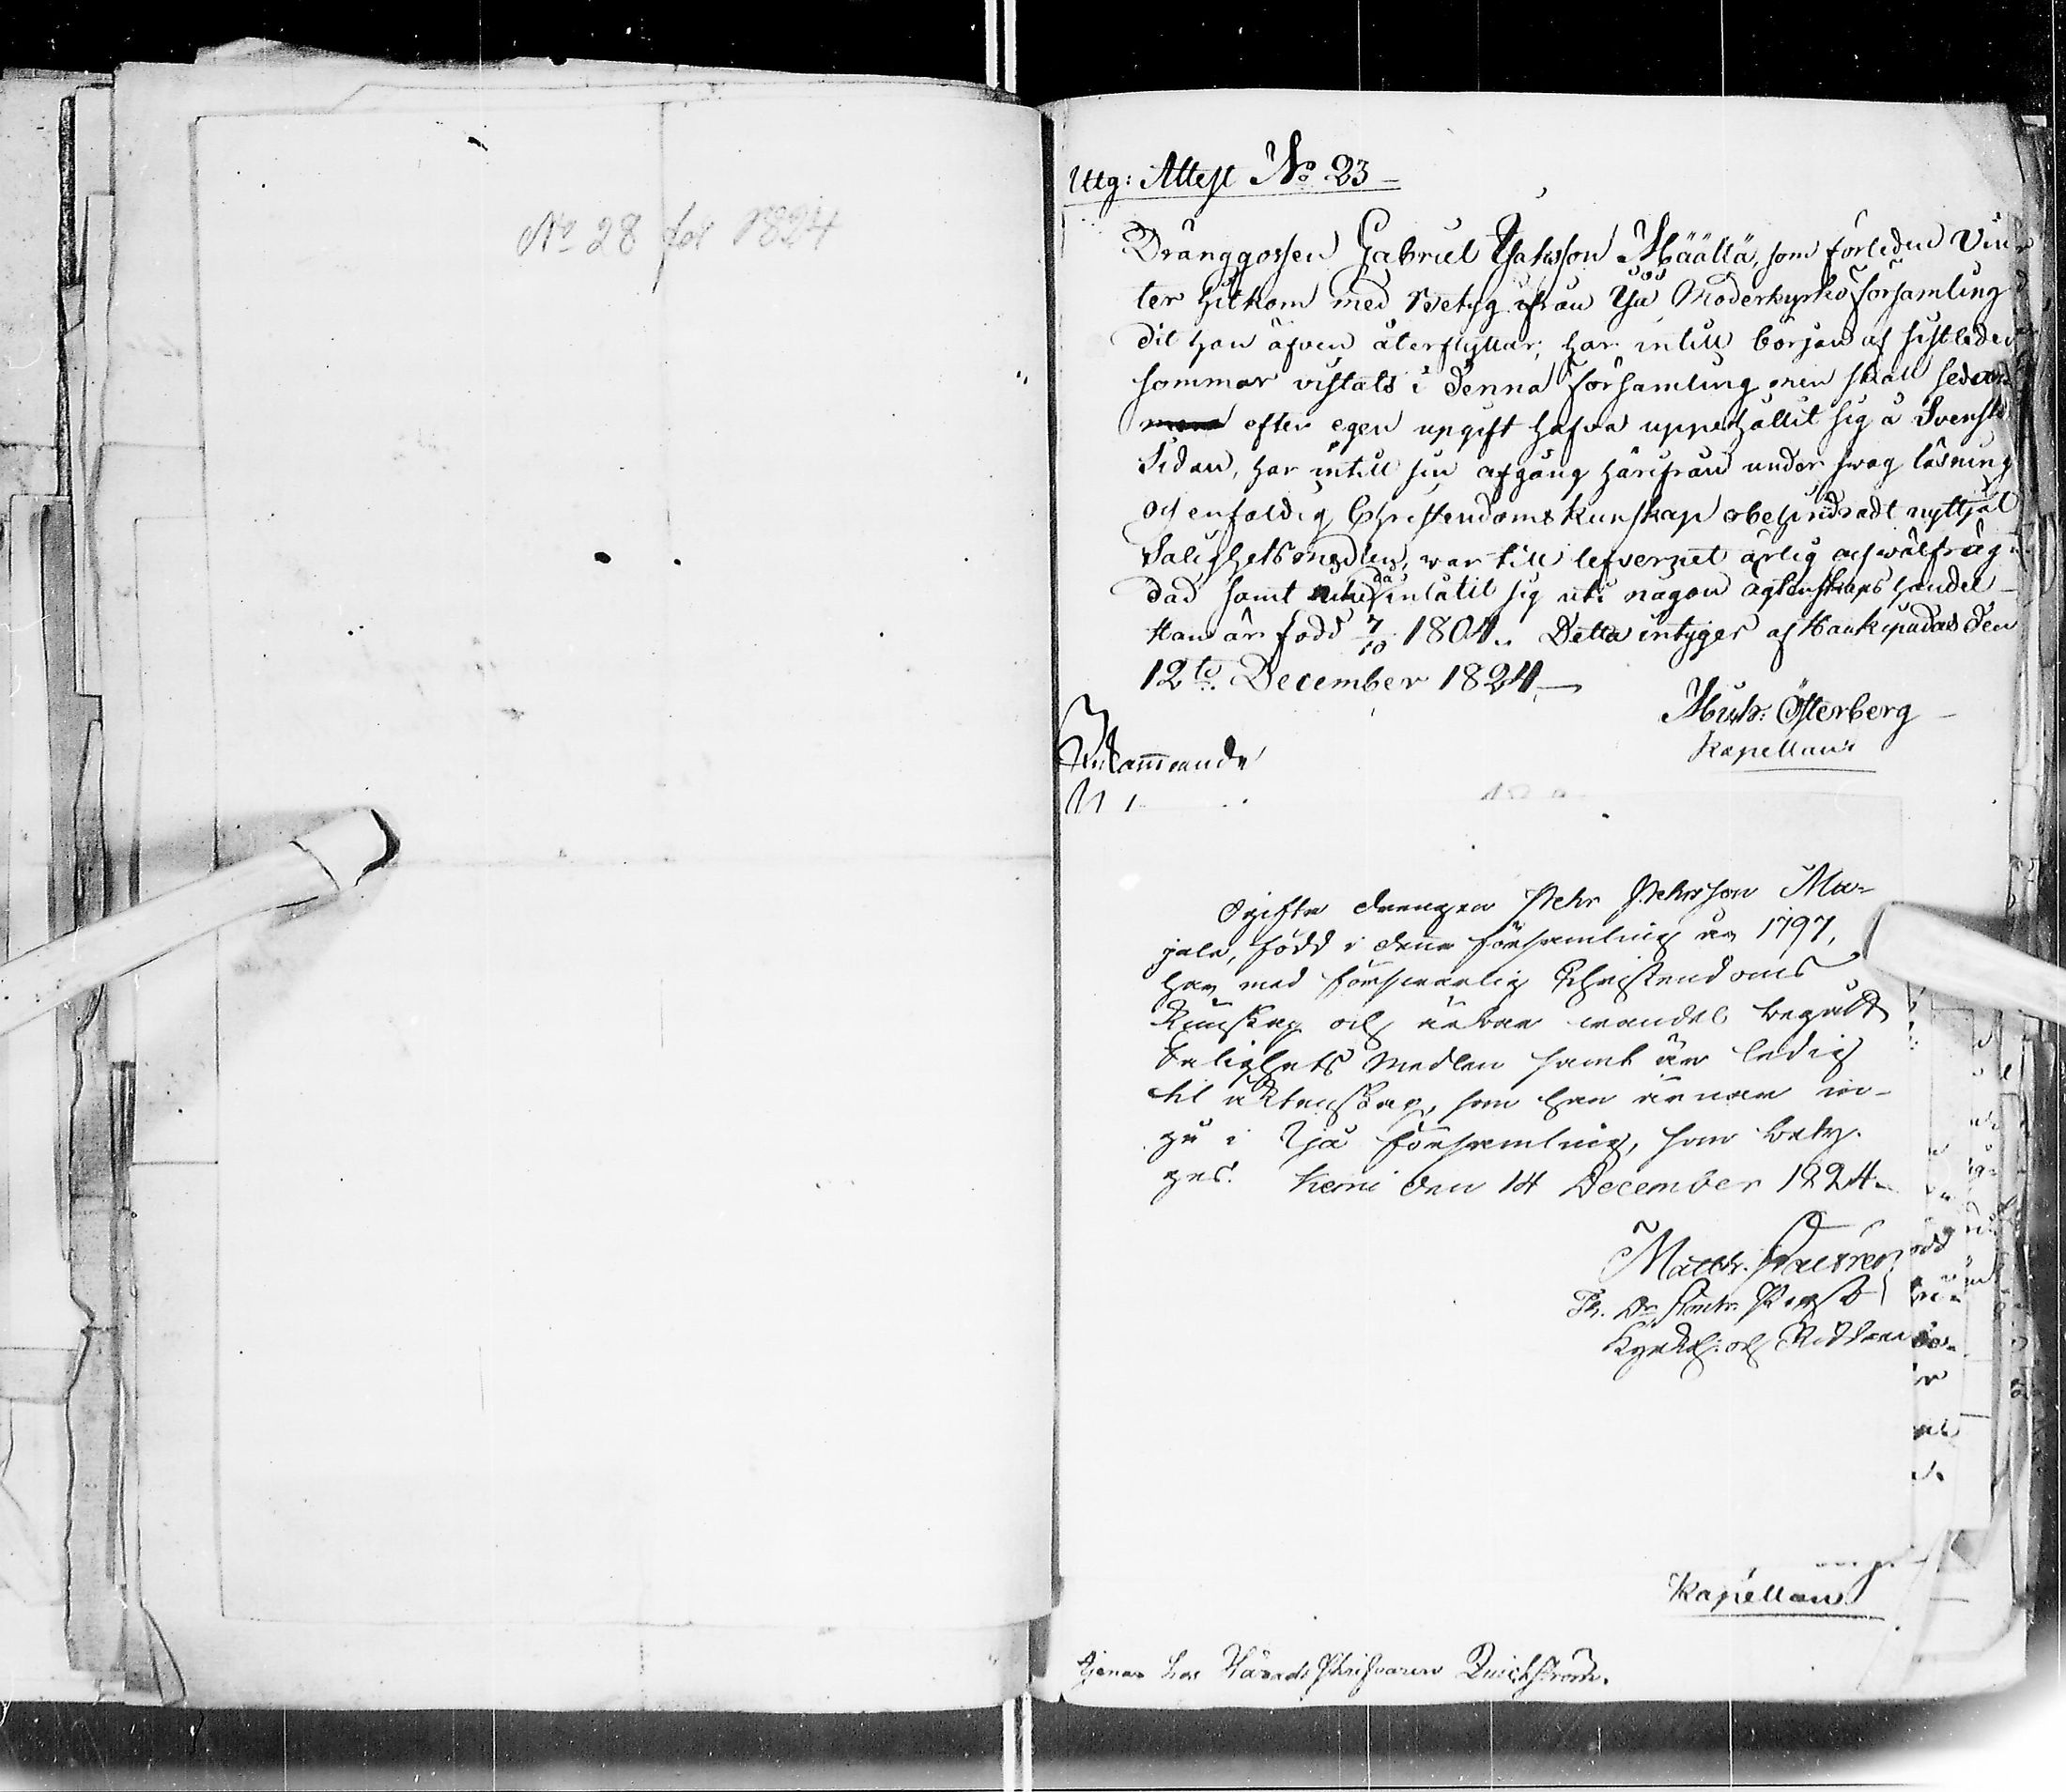 No 28 för 1824
Utg: Attest No 23
Dränggossen Gabriel Isaksson Määttä, som förleden Vin-
ter hitkom med Betyg ifrån Ijå Moderkyrko församling
dit han äfven återflyttar, har intill början af sistleden
sommar vistats i denna församling men skall
efter egen upgift hafva uppehållit sig å Svenska
Sidan, har intill sin afgång härifrån under swag läsning
och enfaldig Christendoms kunskap obehindradt nyttjat
Salighetsmedlen, war till lefvernet ärlig och wälfräg-
dad samt inlåtit sig uti någon ägtenskaps handel
Han är född 7/10 1804. Detta intygar af Haukipudas den
12te December 1824.
Österberg
Kapellan
Inkommande
N 1
Ogifte drengen Pehr Pehrsson Ma-
jala, född i denna församling år 1797,
har med försvarlig Christendoms
Kunskap och ärbar wandel begått
Salighets medlen samt är ledig
til äktenskap, som han ärnar in-
gå i Ijå församling, som bety-
gas. Kemi den 14 December 1824.
Matth. Castren
Th. Dr. Contr. Prost
Kyrkoh: och Riddare
Kapellan
tjenar hos Härads Skrifvaren Quickström.